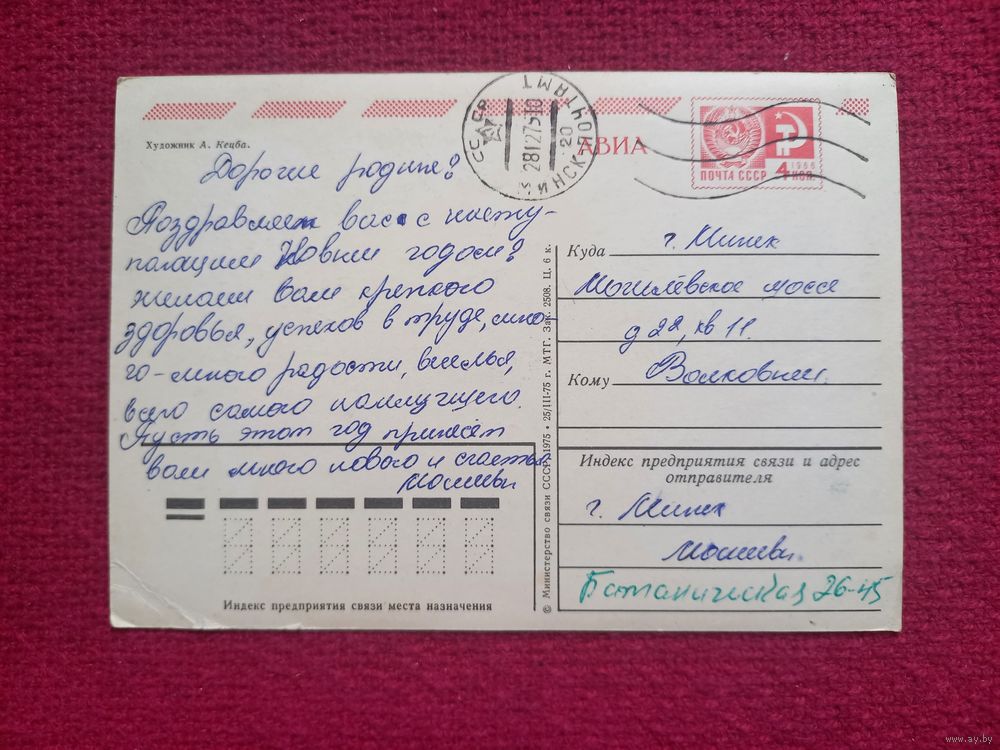 Художник А. Кецба.
Дорогие родные!
Поздравляем вас с насту-
пающим Новым годом!
желаем вам крепкого
здоровья, успехов в труде, мно-
го-много радости, веселья,
всего самого наилучшего.
Пусть этот год принесёт
вам много нового и счастья
Индекс предприятия связи места назначения
© Министерство связи СССР, 1975 • 25/III-75 г. МТГ. Зак. 2508. Ц. 6 к.
СССР
МИНСК ПОЧТАМТ
281275-10
20
АВИА
ПОЧТА СССР
1966
4 КОП.
Куда г. Минск
Могилёвское шоссе
д 22, кв 11.
Кому Волковым.
Индекс предприятия связи и адрес
отправителя
г. Минск
Ботаническая 26-45
www.ay.by